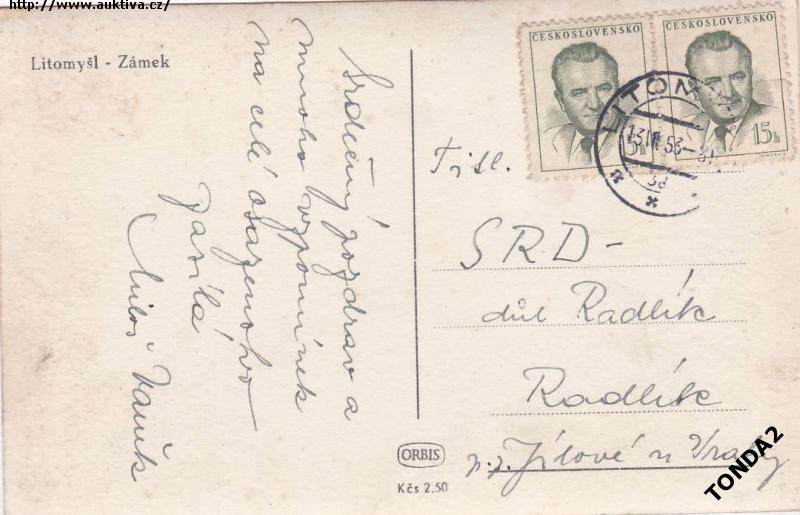 http://www.auktiva.cz/
Litomyšl - Zámek
Srdečný pozdrav a
mnoho vzpomínek
na celé osazenstvo
zasílá
Miloš Vaněk
ČESKOSLOVENSKO
ČESKOSLOVENSKO
15h
LITOM
13.VII.53
Titl.
SRD-
důl Radlík
Radlík
p.p. Jílové u Prahy
ORBIS
Kčs 2,50
TONDA2